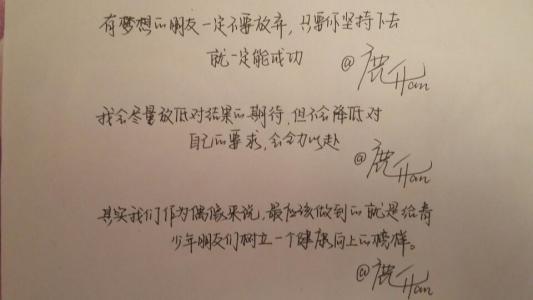 有梦想的朋友一定不要放弃，只要你坚持下去
就一定能成功 @鹿Han
我会尽量放低对结果的期待，但不会降低对
自己的要求，会全力以赴
@鹿Han
其实我们作为偶像来说，最应该做到的就是给青
少年朋友们树立一个健康向上的榜样。
@鹿Han